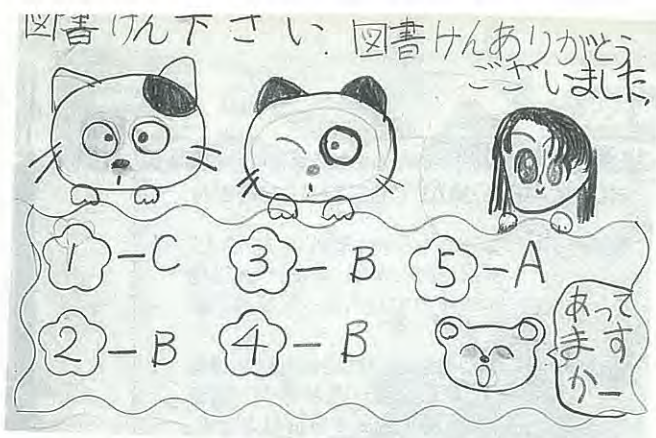 図書けん下さい.
図書けんありがとう
ございました,
1-C
3-B
5-A
2-B
4-B
あって
ます
かー